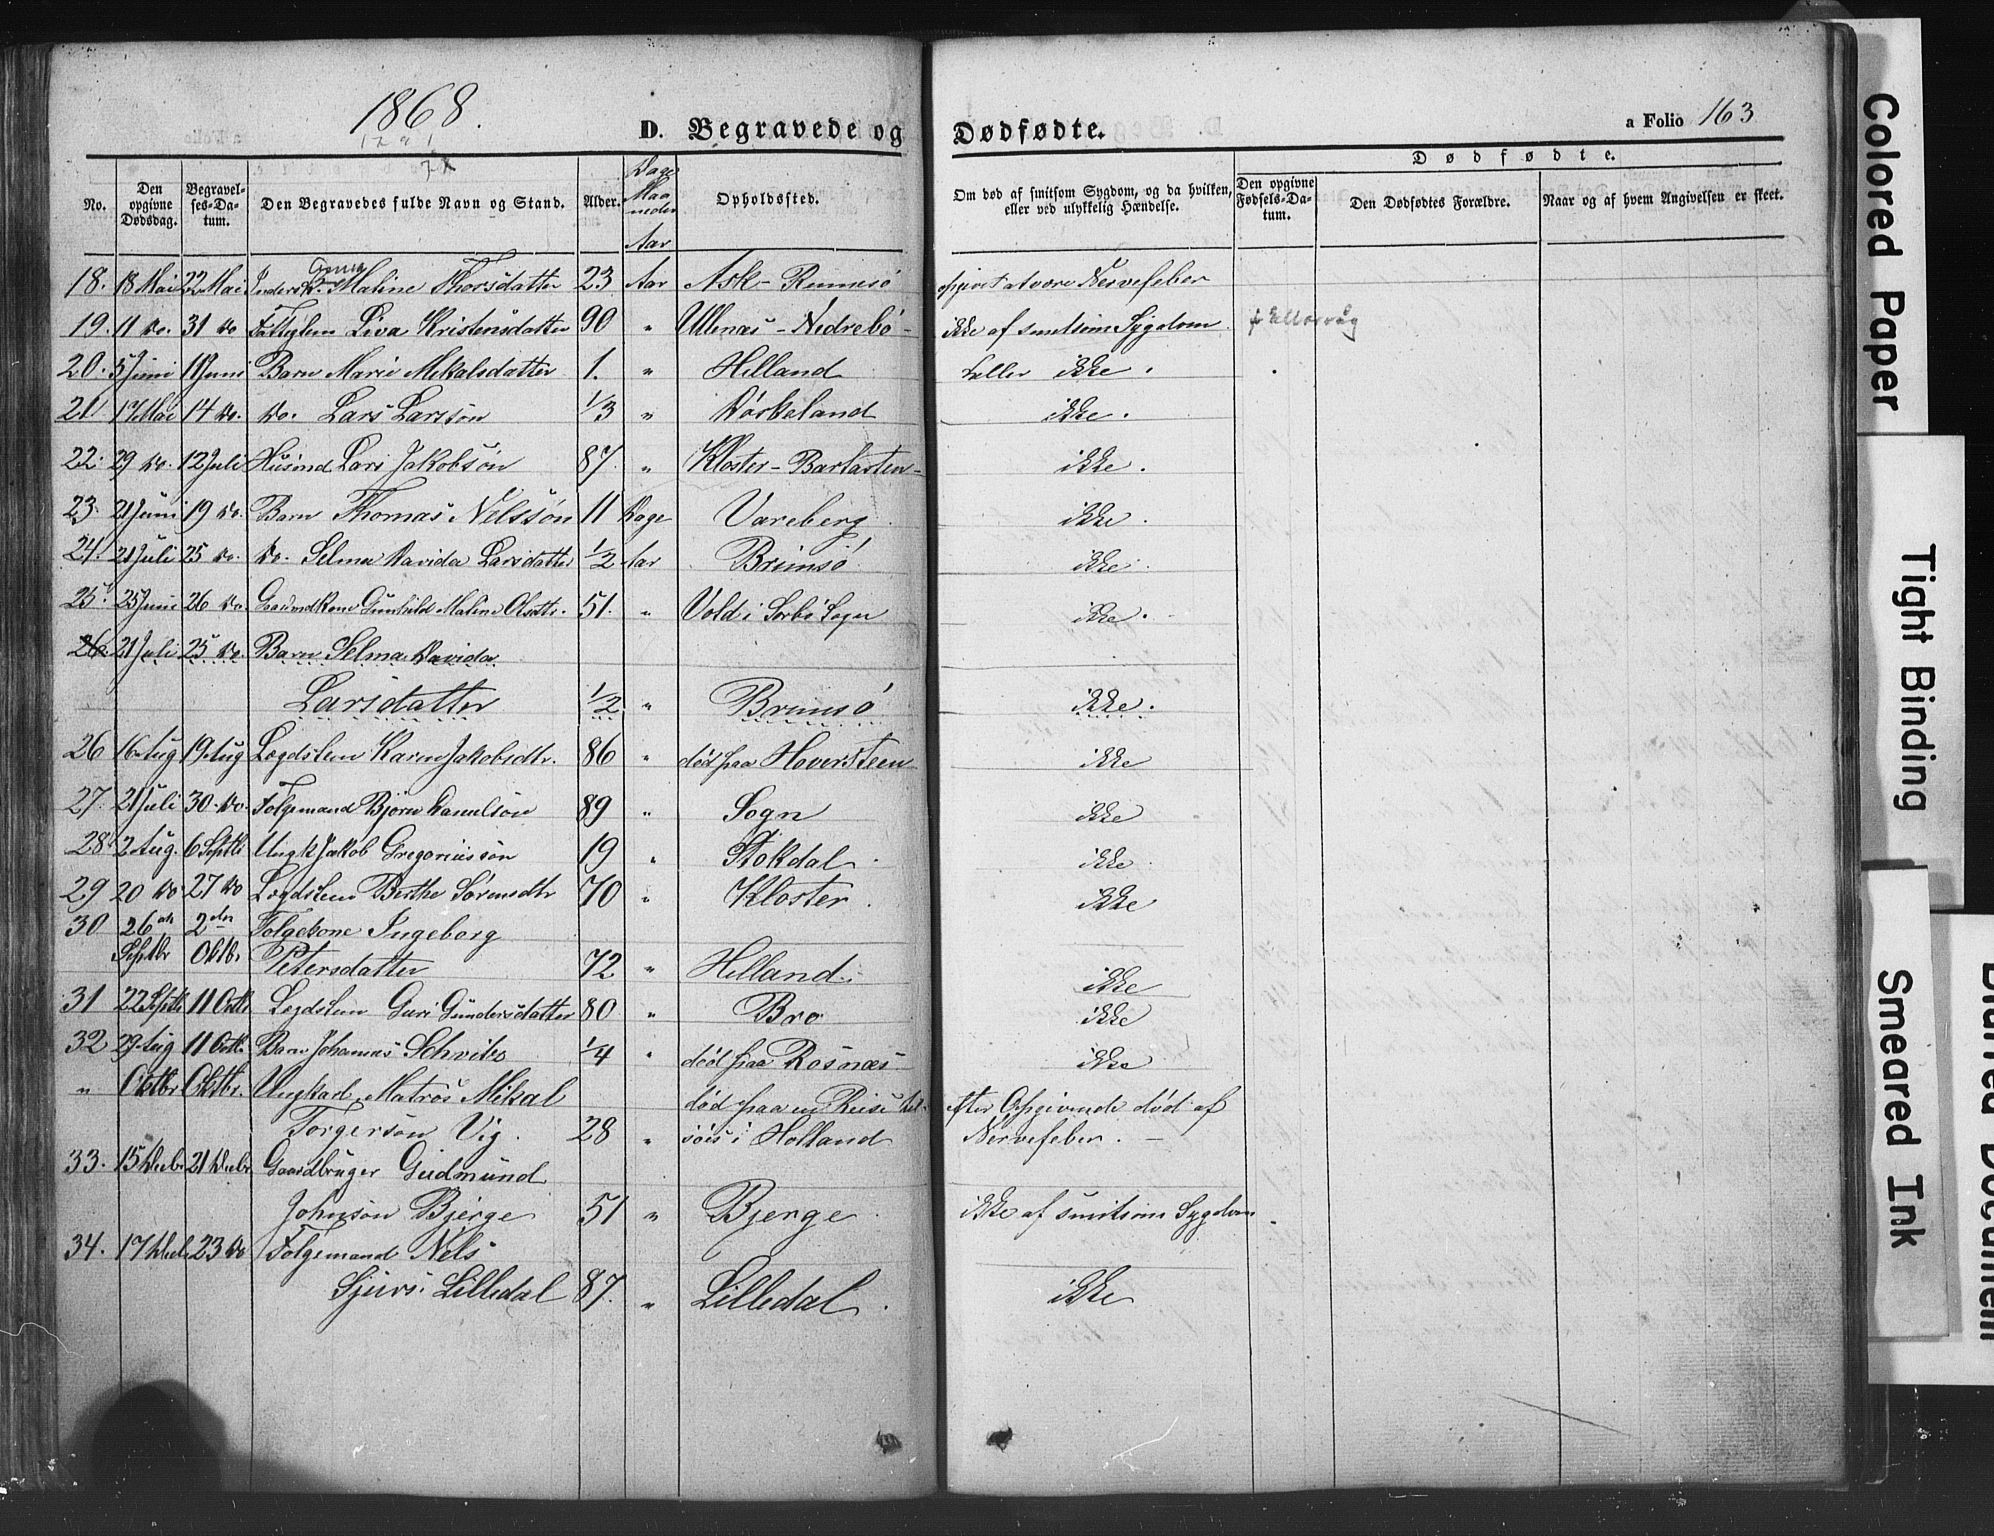 1868.
D. Begravede og Dødfødte.
a Folio 163
No.
Den opgivne Dødsdag.
Begravelses-Datum.
Den Begravedes fulde Navn og Stand.
Alder.
Dage Maaneder Aar
Opholdssted.
Om død af smitsom Sygdom, og da hvilken, eller ved ulykkelig Hændelse.
Dødfødte.
Den opgivne Fødsels-Datum.
Den Dødfødtes Forældre.
Naar og af hvem Angivelsen er skeet.
18. 18 Mai 22 Mai Malene Thorsdatter 23 Aar Ask - Rennesö opgivet at være Nervefeber
19. 11 do. 31 do Fattiglem Liva Kristensdatter 90 " Ullenæs - Nedrebö - ikke af smitsom Sygdom
20. 5 Juni 11 Juni Barn Marie Mikalsdatter 1. " Helland heller ikke.
21 17 Mai 14 do. do. Lars Larssön 1/3 " Döskeland ikke.
22. 29 do. 12 Juli Husmd Lars Jakobsön 87 " Kloster - ikke.
23. 21 Juni 19 do. Barn Thomas Nelssön 11 Dage Vareberg ikke.
24. 21 Juli 25 do. do. Selma Davida Larsdatter 1/2 Aar Brimsö ikke.
25. 25 Juni 26 do. Gaardmdkone Gunhild Malene Olsdtr. 51. " Vold i Sörbö Sogn ikke.
26 21 Juli 25 do. Barn Selma Davida
Larsdatter 1/2 " Brimsö ikke.
26 16 Aug 19 Aug Lægdslem Karen Jakobsdtr. 86 " död paa Hoversteen ikke
27. 21 Juli 30 do. Folgemand Björn Danielsön 89 " Sogn ikke
28 2 Aug. 6 Septb Ungk Jakob Gregoriussön 19 " Stokdal ikke
29 20 do 27 do Lægdslem Berthe Sörensdtr 70 " Kloster. ikke
30 26de 2den Folgekone Ingeborg
Septbr Oktbr. Petersdatter 72 " Helland ikke
31 22 Septb 11 Octb Lægdslem Guri Gundersdatter 80 " Bro ikke
32 29 Aug 11 Octb. Barn Johannes 1/4 " död paa Rosnæs ikke
" Oktbr Oktbr. Ungkarl Matros Mikal död paa en Reise til- efter Opgivende död af
Torgersön Vig. 28 " söes i Holland Nervefeber. -
33. 15 Decbr 21 Decbr Gaardbruger Gudmund
Johnson Bjerge 51 " Bjerge ikke af smitsom Sygdom.
34. 17 Decb 23 do Folgemand Nels
Sjurs. Lilledal 87. " Lilledal. ikke
Colored Paper
Tight Binding
Smeared Ink
Blurred Document